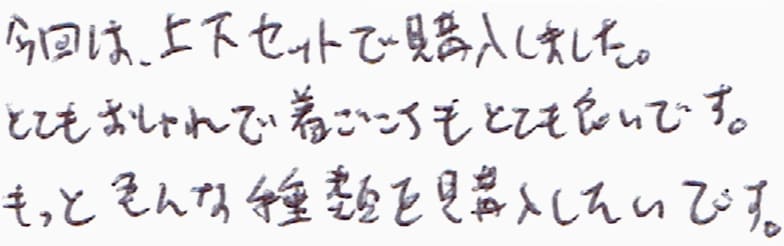 今回は、上下セットで購入しました。
とてもおしゃれで着ごこちもとても良いです。
もっと色んな種類を購入したいです。